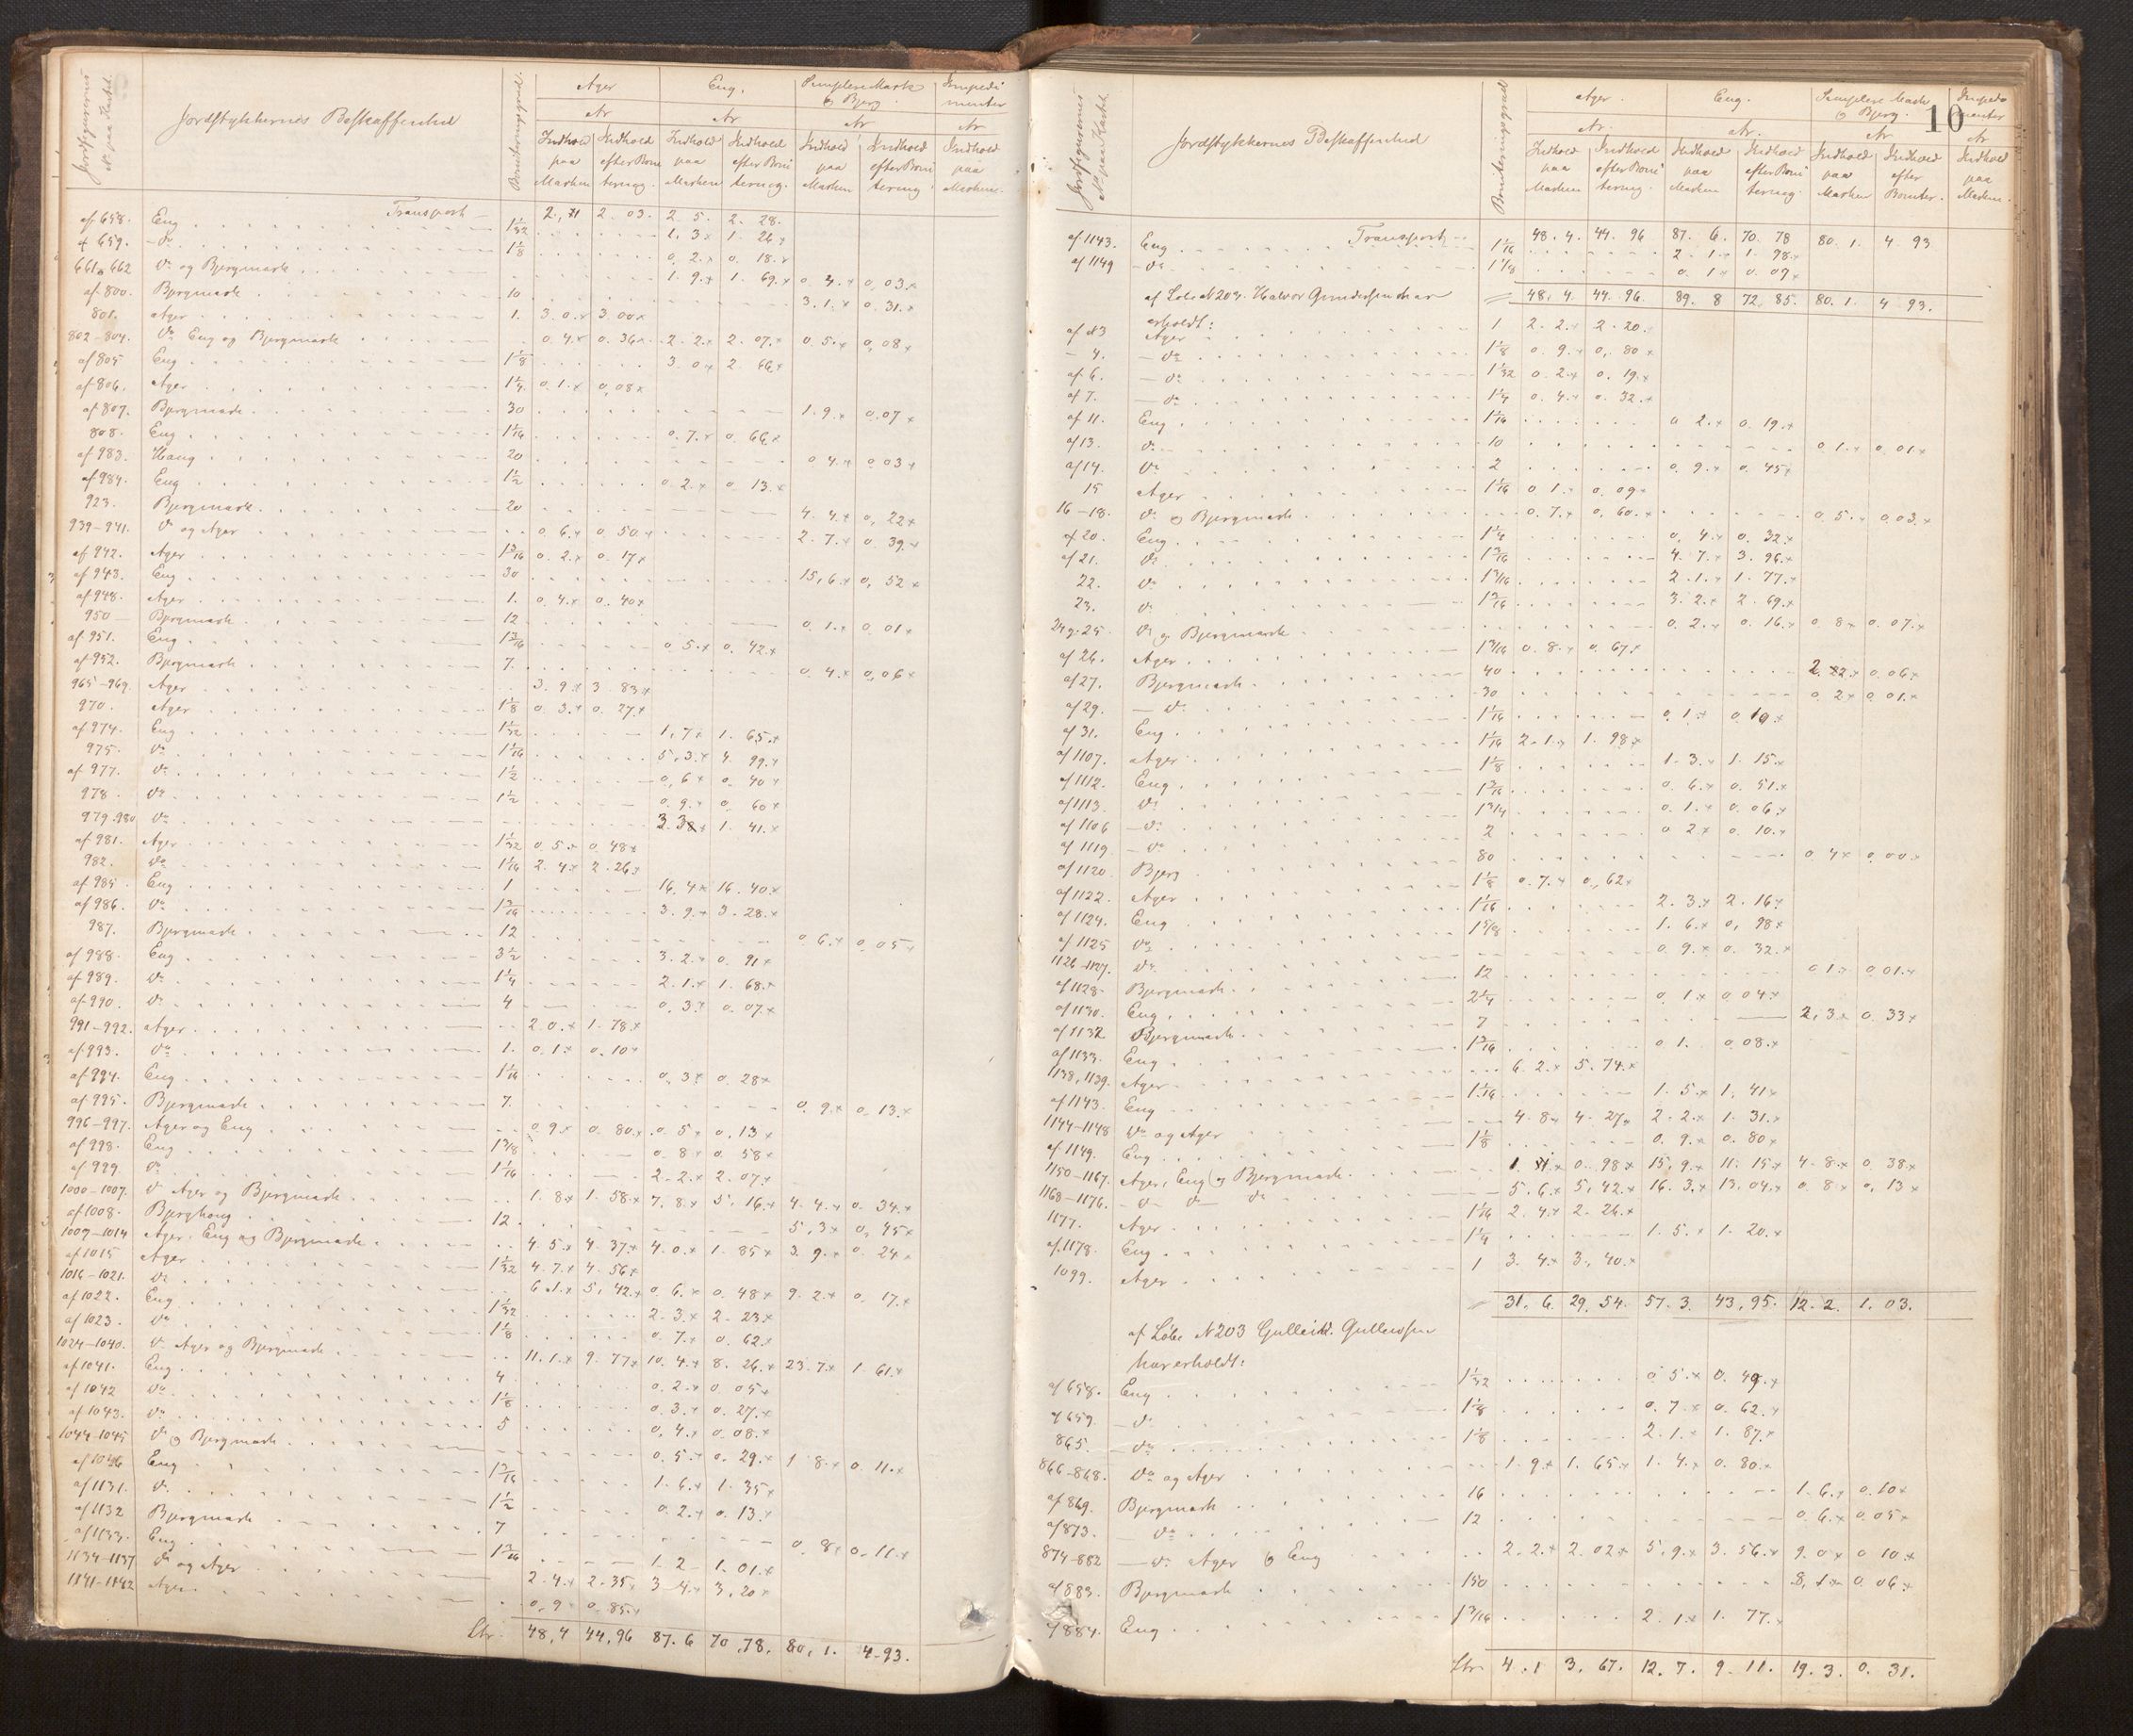 Jordfigurernes No paa Kartet. Jordstykkernes Beskaffenhed Boniteringsgrad. Ager Eng. Simplere Mark og Bjerg. Impedimenter
Ar Ar Ar Ar
Indhold paa Marken Indhold efter Bonitering. Indhold paa Marken Indhold efter Bonitering. Indhold paa Marken Indhold efter Bonitering. Indhold paa Marken.
Transport 2. 71 2. 03. 2. 5. 2. 28.
af 658. Eng 1 1/32 1. 3. 1. 26.
af 659. do 1 1/8 0. 2. 0. 18.
661 a 662 do og Bjergmark 1. 9. 1. 69. 0. 4. 0. 03.
af 800. Bjergmark 10 3. 1. 0. 31.
801. Ager 1. 3. 0. 3. 00
802-804. do Eng og Bjergmark 0. 4. 0. 36. 2. 2. 2. 07. 0. 5. 0. 08
af 805 Eng 1 1/8 3. 0. 2. 66.
af 806. Ager 1 1/4. 0. 1. 0. 08
af 807. Bjergmark 30 1. 9. 0. 07
808. Eng 1 1/16 0. 7. 0. 66.
af 983. Haug 20 0. 4. 0. 03
af 984. Eng 1 1/2 0. 2. 0. 13.
923. Bjergmark. 20 4. 4. 0. 22
939-941. do og Ager 0. 6. 0. 50. 2. 7. 0. 39.
af 942. Ager 1 3/16 0. 2. 0. 17
af 943. Eng 30 15. 6. 0. 52
af 948. Ager 1. 0. 4. 0. 40
950 Bjergmark 12 0. 1. 0. 01
af 951. Eng 1 3/16 0. 5. 0. 42.
af 952. Bjergmark 7. 0. 4. 0. 06
965-969. Ager 3. 9. 3. 83
970. Ager 1 1/8 0. 3. 0. 27.
af 974. Eng 1 1/32 1. 7. 1. 65.
975. do 1 1/16 5. 3. 4. 99.
af 977. do 1 1/2 0. 6 0. 40
978. do 1 1/2 0. 9. 0. 60
979.980 do 3. 3 1. 41.
af 981. Ager 1 1/32 0. 5. 0. 48
982. do 1 1/16 2. 4. 2. 26
af 985. Eng 1 16. 4 16. 40.
af 986. do 1 3/16 3. 9. 3. 28.
987. Bjergmark 12 0. 6. 0. 05
af 988. Eng 3 1/2 3. 2. 0. 91
af 989. do 1 1/4 2. 1. 1. 68.
af 990. do 4 0. 3. 0. 07.
991-992. Ager 2. 0. 1. 78.
af 993. do 1. 0. 1. 0. 10
af 994. Eng 1 1/16 0. 3. 0. 28
af 995. Bjergmark 7. 0. 9. 0. 13.
996-997. Ager og Eng 0. 9. 0. 80. 0. 5 0. 13
af 998. Eng 1 3/8 0. 8 0. 58
af 999 do 1 1/16 2. 2. 2. 07.
1000-1007. do Ager og Bjergmark 1. 8 1. 58. 7. 8. 5. 16. 4. 4. 0. 34.
af 1008. Berghong 12. 5. 3 0. 45
1009-1014 Ager. Eng og Bjergmark 4. 5. 4. 37. 4. 0. 1. 85 3. 9. 0. 24
af 1015 Ager 1 1/32 4. 7. 4. 56
1016-1021. do 6. 1. 5. 42. 0. 6. 0. 48 9. 2. 0. 17.
af 1022. Eng 1 1/32 2. 3. 2. 23
af 1023. do 1 1/8 0. 7. 0. 62.
1024-1040. do Ager og Bjergmark 11. 1. 9. 77 10. 4. 8. 26. 23. 7. 1. 61.
af 1041. Eng 4 0. 2. 0. 05
af 1042 do 1 1/8 0. 3. 0. 27.
af 1043. do 5 0. 4. 0. 08.
1044-1045 do og Bjergmark 0. 5. 0. 29. 1. 8. 0. 11.
af 1046 Eng 1 3/16 1. 6. 1. 35
af 1131. do 1 1/2 0. 2. 0. 13.
af 1132 Bjergmark 7 0. 8. 0. 11.
af 1133. Eng 1 3/16 1. 2 1. 01.
1134-1137 do og Ager 2. 4. 2. 35. 3. 4. 3. 20
1141-1142 Ager 0. 9 0. 85.
Ltr. 48. 4 44. 96 87. 6 70. 78. 80. 1. 4. 93.
10
Jordfigurernes No paa Kartet. Jordstykkernes Beskaffenhed Boniteringsgrad Ager. Eng. Simplere Mark og Bjerg. Impedimenter
Ar. Ar. Ar Ar
Indhold paa Marken Indhold efter Bonitering. Indhold paa Marken Indhold efter Bonitering. Indhold paa Marken Indhold efter Boniter. Indhold paa Marken.
Transport 48. 4. 44. 96 87. 6. 70. 78 80. 1. 4. 93
af 1143. Eng 1 1/16 2. 1. 1. 98.
af 1149 do 1 1/8 0. 1. 0. 09
48. 4. 44. 96. 89. 8 72. 85. 80. 1. 4. 93.
af Løbe No 203. Halvor Gundersen har
erholdt:
af No 3 Ager 1 2. 2. 2. 20.
4. do 1 1/8 0. 9. 0. 80
af 6. do 1 1/32 0. 2. 0. 19.
af 7. do 1 1/4 0. 4. 0. 32.
af 11. Eng 1 1/16 0. 2. 0. 19.
af 13. do 10 0. 1. 0. 01
af 14. do 2 0. 9. 0. 45
15 Ager 1 1/16 0. 1. 0. 09
16-18. do og Bjergmark 0. 7. 0. 60. 0. 5. 0. 03.
af 20. Eng 1 1/4 0. 4. 0. 32.
af 21. do 1 3/16 4. 7. 3. 96.
22. do 1 3/16 2. 1. 1. 77.
23. do 1 3/16 3. 2. 2. 69.
24 og 25 do og Bjergmark 0. 2. 0. 16. 0. 8 0. 07.
af 26. Ager 1 3/16 0. 8. 0. 67.
af 27. Bjergmark 40 2. 2 0. 06
af 29. do 30 0. 2 0. 01.
af 31. Eng 1 1/16 0. 1. 0. 10
af 1107. Ager 1 1/16 2. 1. 1. 98
af 1112. Eng 1 1/8 1. 3. 1. 15.
af 1113. do 1 3/16 0. 6. 0. 51.
af 1106 do 1 3/4 0. 1. 0. 06.
af 1119. do 2 0. 2 0. 10.
af 1120. Bjerg 80 0. 4 0. 00
af 1122. Ager 1 1/8 0. 7. 0. 62
af 1124. Eng 1 1/16 2. 3. 2. 16
af 1125 do 1 5/8 1. 6. 0. 98
1126-1127. do 0. 9. 0. 32.
af 1128. Bjergmark 12 0. 1. 0. 01.
af 1130. Eng 2 1/4 0. 1 0. 04
af 1132 Bjergmark 7 2. 3. 0. 33
af 1133. Eng 1 3/16 0. 1. 0. 08.
1138, 1139. Ager 6. 2. 5. 74.
af 1143. Eng 1. 16 1. 5. 1. 41
1144-1148 do og Ager 4. 8 4. 27 2. 2. 1. 31.
af 1149. Eng 1 1/8 0. 9. 0. 80
1150-1167. Ager, Eng og Bjergmark 1. 1. 0. 98 15. 9. 11. 15 4. 8. 0. 38.
1168-1176. do do do 5. 6. 5. 42. 16. 3. 13. 04. 0. 8 0. 13
1177. Ager 1 1/16 2. 4. 2. 26.
af 1178. Eng 1 1/4 1. 5. 1. 20.
1099. Ager 1 3. 4. 3. 40.
31. 6. 29. 54. 57. 3. 43. 95. 12. 2. 1. 03.
af Løbe No 203 Gulleik Gullerssen
har erholdt:
af 658. Eng 1 1/32 0. 5. 0. 49.
af 659. do 1 1/8 0. 7. 0. 62.
865. do 1 1/8 2. 1. 1. 87.
866-868. do og Ager 1. 9. 1. 65 1. 4. 0. 80.
af 869. Bjergmark 16 1. 6. 0. 10
af 873. do 12 0. 6. 0. 05
874-882 do Ager og Eng 2. 2. 2. 02 5. 9. 3. 56. 9. 0 0. 10
af 883. Bjergmark 150 8. 1. 0. 06.
af 884. Eng 1 3/16 2. 1. 1. 77.
Ltr. 4. 1 3. 67. 12. 7. 9. 11. 19. 3. 0. 31.